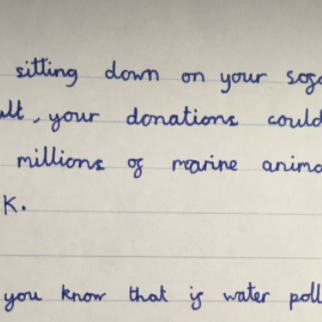 sitting down on your sofa
ult, your donations could
millions of marine anima
K.
you know that is water poll